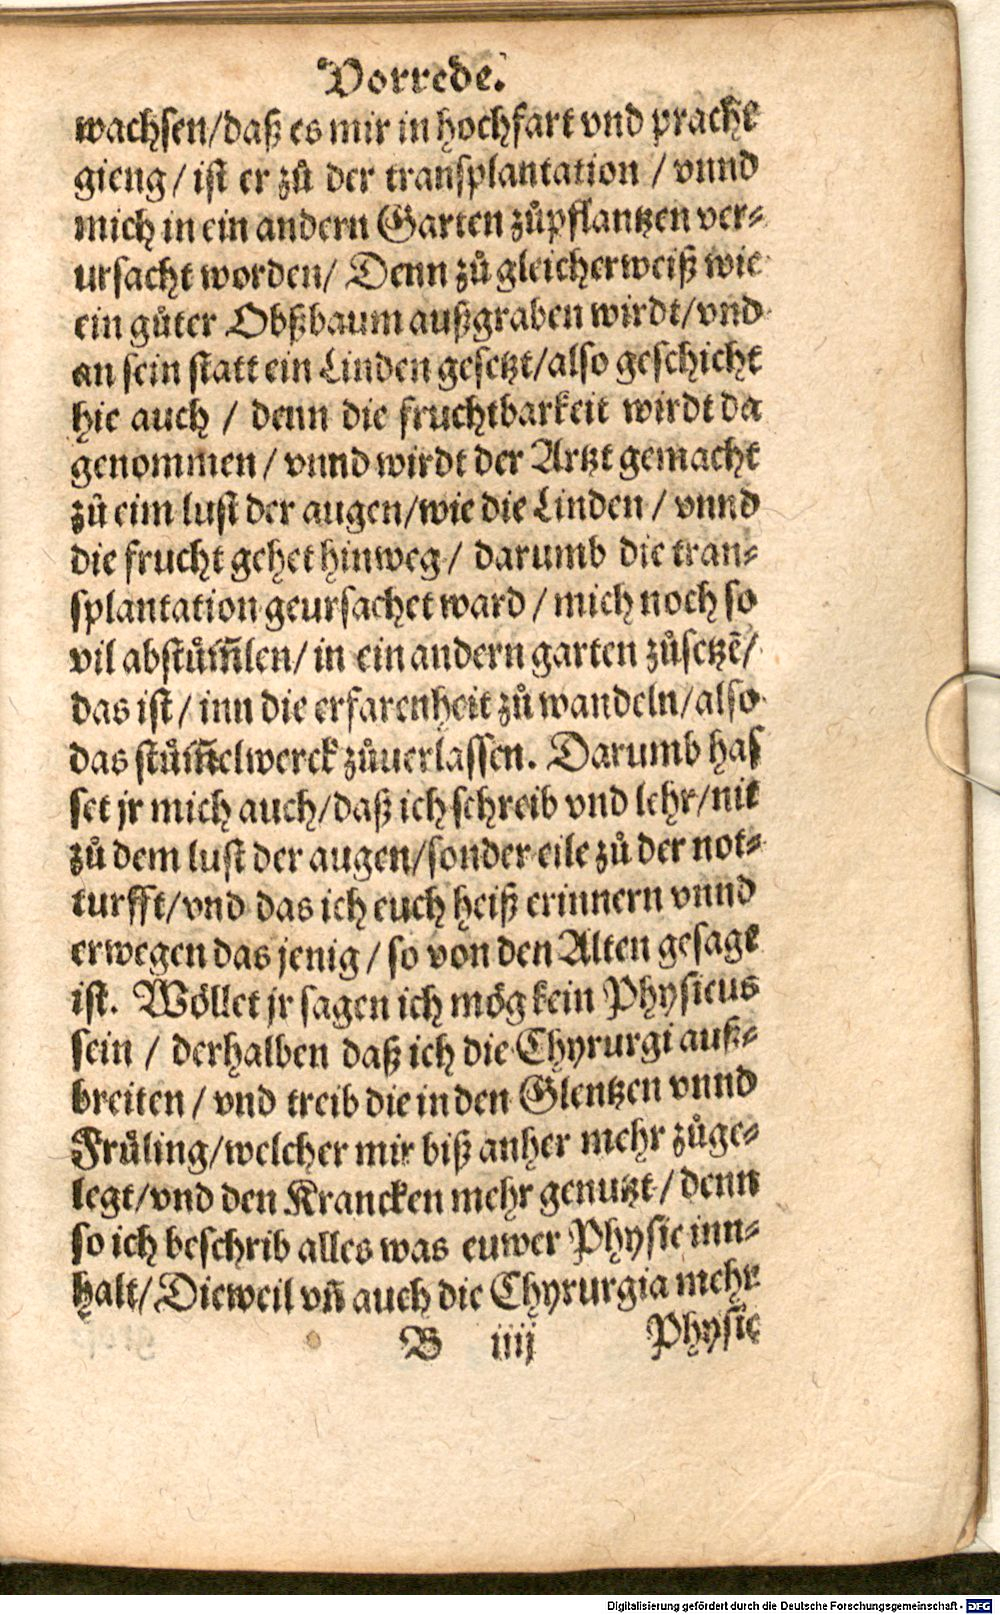 Vorrede.
wachsen/daß es mir in hochfart vnd pracht
gieng / ist er zů der transplantation / vnnd
mich in ein andern Garten zůpflantzen ver⸗
ursacht worden/ Denn zů gleicherweiß wie
ein gůter Obßbaum außgraben wirdt/vnd
an sein statt ein Linden gesetzt/also geschicht
hie auch / denn die fruchtbarkeit wirdt da
genommen / vnnd wirdt der Artzt gemacht
zů eim lust der augen/wie die Linden / vnnd
die frucht gehet hinweg / darumb die tran⸗
splantation geursachet ward / mich noch so
vil abstům̃len/ in ein andern garten zůsetzẽ/
das ist / inn die erfarenheit zů wandeln/also
das stům̃elwerck zůuerlassen. Darumb has
set jr mich auch/daß ich schreib vnd lehr/nit
zů dem lust der augen/sonder eile zů der not⸗
turfft/vnd das ich euch heiß erinnern vnnd
erwegen das jenig / so von den Alten gesagt
ist. Wöllet jr sagen ich mög kein Physicus
sein / derhalben daß ich die Chyrurgi auß⸗
breiten / vnd treib die in den Glentzen vnnd
Früling/welcher mir biß anher mehr zůge⸗
legt/vnd den Krancken mehr genutzt / denn
so ich beschrib alles was euwer Physic inn⸗
halt/ Dieweil vñ auch die Chyrurgia mehr
B iiij Physic
Digitalisierung gefördert durch die Deutsche Forschungsgemeinschaft - DFG